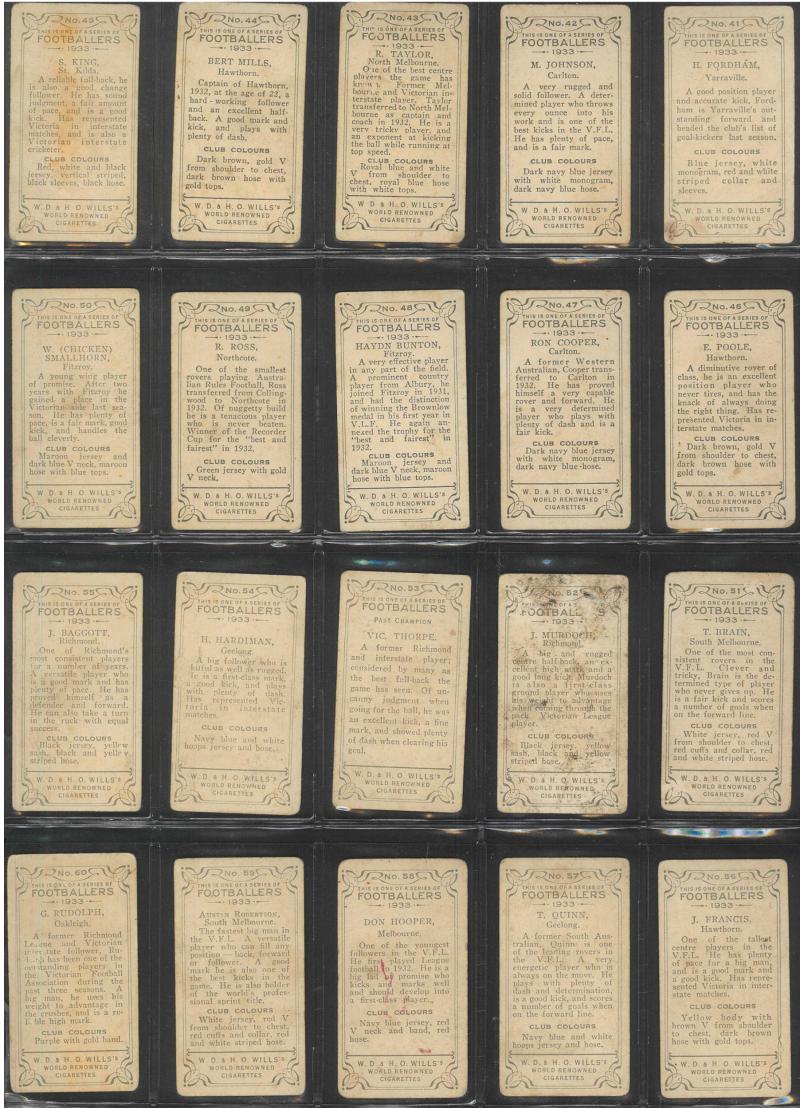 No. 45
THIS IS ONE OF A SERIES OF
FOOTBALLERS
1933
S. KING,
St. Kilda.
A reliable full-back, he
is also a good change
follower. He has sound
judgment, a fair amount
of pace, and is a good
kick. Has represented
Victoria in interstate
matches, and is also a
Victorian interstate
cricketer.
CLUB COLOURS
Red, white and black
jersey, vertical striped,
black sleeves, black hose.
W. D. & H. O. WILLS's
WORLD RENOWNED
CIGARETTES
No. 44
THIS IS ONE OF A SERIES OF
FOOTBALLERS
1933
BERT MILLS,
Hawthorn.
Captain of Hawthorn,
1932, at the age of 22, a
hard-working follower
and an excellent half-
back. A good mark and
kick, and plays with
plenty of dash.
CLUB COLOURS
Dark brown, gold V
from shoulder to chest,
dark brown hose with
gold tops.
W. D. & H. O. WILLS's
WORLD RENOWNED
CIGARETTES
No. 43
THIS IS ONE OF A SERIES OF
FOOTBALLERS
1933
R. TAYLOR,
North Melbourne.
One of the best centre
players the game has
known. Former Mel-
bourne and Victorian in-
terstate player, Taylor
transferred to North Mel-
bourne as captain and
coach in 1932. He is a
very tricky player, and
an exponent at kicking
the ball while running at
top speed.
CLUB COLOURS
Royal blue and white
V from shoulder to
chest, royal blue hose
with white tops.
W. D. & H. O. WILLS's
WORLD RENOWNED
CIGARETTES
No. 42
THIS IS ONE OF A SERIES OF
FOOTBALLERS
1933
M. JOHNSON,
Carlton.
A very rugged and
solid follower. A deter-
mined player who throws
every ounce into his
work and is one of the
best kicks in the V.F.L.
He has plenty of pace,
and is a fair mark.
CLUB COLOURS
Dark navy blue jersey
with white monogram,
dark navy blue hose.
W. D. & H. O. WILLS's
WORLD RENOWNED
CIGARETTES
No. 41
THIS IS ONE OF A SERIES OF
FOOTBALLERS
1933
H. FORDHAM,
Yarraville.
A good position player
and accurate kick, Ford-
ham is Yarraville's out-
standing forward and
headed the club's list of
goal-kickers last season.
CLUB COLOURS
Blue jersey, white
monogram, red and white
striped collar and
sleeves.
W. D. & H. O. WILLS's
WORLD RENOWNED
CIGARETTES
No. 50
THIS IS ONE OF A SERIES OF
FOOTBALLERS
1933
W. (CHICKEN)
SMALLHORN,
Fitzroy.
A young wing player
of promise. After two
years with Fitzroy he
gained a place in the
Victorian side last sea-
son. He has plenty of
pace, is a fair mark, good
kick, and handles the
ball cleverly.
CLUB COLOURS
Maroon jersey and
dark blue V neck, maroon
hose with blue tops.
W. D. & H. O. WILLS's
WORLD RENOWNED
CIGARETTES
No. 49
THIS IS ONE OF A SERIES OF
FOOTBALLERS
1933
R. ROSS,
Northcote.
One of the smallest
rovers playing Austra-
lian Rules Football, Ross
transferred from Colling-
wood to Northcote in
1932. Of nuggety build
he is a tenacious player
who is never beaten.
Winner of the Recorder
Cup for the "best and
fairest" in 1932.
CLUB COLOURS
Green jersey with gold
V neck.
W. D. & H. O. WILLS's
WORLD RENOWNED
CIGARETTES
No. 48
THIS IS ONE OF A SERIES OF
FOOTBALLERS
1933
HAYDN BUNTON,
Fitzroy.
A very effective player
in any part of the field.
A prominent country
player from Albury, he
joined Fitzroy in 1931,
and had the distinction
of winning the Brownlow
medal in his first year in
V.L.F. He again an-
nexed the trophy for the
"best and fairest" in
1932.
CLUB COLOURS
Maroon jersey and
dark blue V neck, maroon
hose with blue tops.
W. D. & H. O. WILLS's
WORLD RENOWNED
CIGARETTES
No. 47
THIS IS ONE OF A SERIES OF
FOOTBALLERS
1933
RON COOPER,
Carlton.
A former Western
Australian, Cooper trans-
ferred to Carlton in
1932. He has proved
himself a very capable
rover and forward. He
is a very determined
player who plays with
plenty of dash and is a
fair kick.
CLUB COLOURS
Dark navy blue jersey
with white monogram,
dark navy blue hose.
W. D. & H. O. WILLS's
WORLD RENOWNED
CIGARETTES
No. 46
THIS IS ONE OF A SERIES OF
FOOTBALLERS
1933
E. POOLE,
Hawthorn.
A diminutive rover of
class, he is an excellent
position player who
never tires, and has the
knack of always doing
the right thing. Has re-
presented Victoria in in-
terstate matches.
CLUB COLOURS
Dark brown, gold V
from shoulder to chest,
dark brown hose with
gold tops.
W. D. & H. O. WILLS's
WORLD RENOWNED
CIGARETTES
No. 55
THIS IS ONE OF A SERIES OF
FOOTBALLERS
1933
J. BAGGOTT,
Richmond.
One of Richmond's
most consistent players
for a number of years.
A versatile player who
is a good mark and has
plenty of pace. He has
proved himself as a
defender and forward.
He can also take a turn
in the ruck with equal
success.
CLUB COLOURS
Black jersey, yellow
sash, black and yellow
striped hose.
W. D. & H. O. WILLS's
WORLD RENOWNED
CIGARETTES
No. 54
THIS IS ONE OF A SERIES OF
FOOTBALLERS
1933
H. HARDIMAN,
Geelong.
A big follower who is
skilful as well as rugged.
He is a first-class mark,
a good kick, and plays
with plenty of dash.
Has represented Vic-
toria in interstate
matches.
CLUB COLOURS
Navy blue and white
hoops jersey and hose.
W. D. & H. O. WILLS's
WORLD RENOWNED
CIGARETTES
No. 53
THIS IS ONE OF A SERIES OF
FOOTBALLERS
PAST CHAMPION
VIC. THORPE.
A former Richmond
and interstate player;
considered by many as
the best full-back the
game has seen. Of un-
canny judgment when
going for the ball, he was
an excellent kick, a fine
mark, and showed plenty
of dash when clearing his
goal.
W. D. & H. O. WILLS's
WORLD RENOWNED
CIGARETTES
No. 52
THIS IS ONE OF A S
FOOTBALL S
1933
J. MURDOCH,
Richmond.
A big and rugged
centre half-back, an ex-
cellent high mark and a
good long kick. Murdoch
is also a first-class
ground player who uses
his weight to advantage
when coming through the
pack. Victorian League
player.
CLUB COLOURS
Black jersey, yellow
sash, black and yellow
striped hose.
W. D. & H. O. WILLS's
WORLD RENOWNED
CIGARETTES
No. 51
THIS IS ONE OF A SERIES OF
FOOTBALLERS
1933
T. BRAIN,
South Melbourne.
One of the most con-
sistent rovers in the
V.F.L. Clever and
tricky, Brain is the de-
termined type of player
who never gives up. He
is a fair kick and scores
a number of goals when
on the forward line.
CLUB COLOURS
White jersey, red V
from shoulder to chest,
red cuffs and collar, red
and white striped hose.
W. D. & H. O. WILLS's
WORLD RENOWNED
CIGARETTES
No. 60
THIS IS ONE OF A SERIES OF
FOOTBALLERS
1933
G. RUDOLPH,
Oakleigh.
A former Richmond
League and Victorian
interstate follower, Ru-
dolph has been one of the
outstanding players in
the Victorian Football
Association during the
past three seasons. A
big man, he uses his
weight to advantage in
the crushes, and is a re-
liable high mark.
CLUB COLOURS
Purple with gold band.
W. D. & H. O. WILLS's
WORLD RENOWNED
CIGARETTES
No. 59
THIS IS ONE OF A SERIES OF
FOOTBALLERS
1933
AUSTIN ROBERTSON,
South Melbourne.
The fastest big man in
the V.F.L. A versatile
player who can fill any
position—back, forward
or follower. A good
mark he is also one of
the best kicks in the
game. He is also holder
of the world's profes-
sional sprint title.
CLUB COLOURS
White jersey, red V
from shoulder to chest,
red cuffs and collar, red
and white striped hose.
W. D. & H. O. WILLS's
WORLD RENOWNED
CIGARETTES
No. 58
THIS IS ONE OF A SERIES OF
FOOTBALLERS
1933
DON HOOPER,
Melbourne.
One of the youngest
followers in the V.F.L.
He first played League
football in 1932. He is a
big lad of promise who
kicks and marks well
and should develop into
a first-class player.
CLUB COLOURS
Navy blue jersey, red
V neck and band, red
hose.
W. D. & H. O. WILLS's
WORLD RENOWNED
CIGARETTES
No. 57
THIS IS ONE OF A SERIES OF
FOOTBALLERS
1933
T. QUINN,
Geelong.
A former South Aus-
tralian, Quinn is one of
the leading rovers in
the V.F.L. A very
energetic player who is
always on the move. He
plays with plenty of
dash and determination,
is a good kick, and scores
a number of goals when
on the forward line.
CLUB COLOURS
Navy blue and white
hoops jersey and hose.
W. D. & H. O. WILLS's
WORLD RENOWNED
CIGARETTES
No. 56
THIS IS ONE OF A SERIES OF
FOOTBALLERS
1933
J. FRANCIS,
Hawthorn.
One of the tallest
centre players in the
V.F.L. He has plenty
of pace for a big man,
and is a good mark and
a good kick. Has repre-
sented Victoria in inter-
state matches.
CLUB COLOURS
Yellow body with
brown V from shoulder
to chest, dark brown
hose with gold tops.
W. D. & H. O. WILLS's
WORLD RENOWNED
CIGARETTES